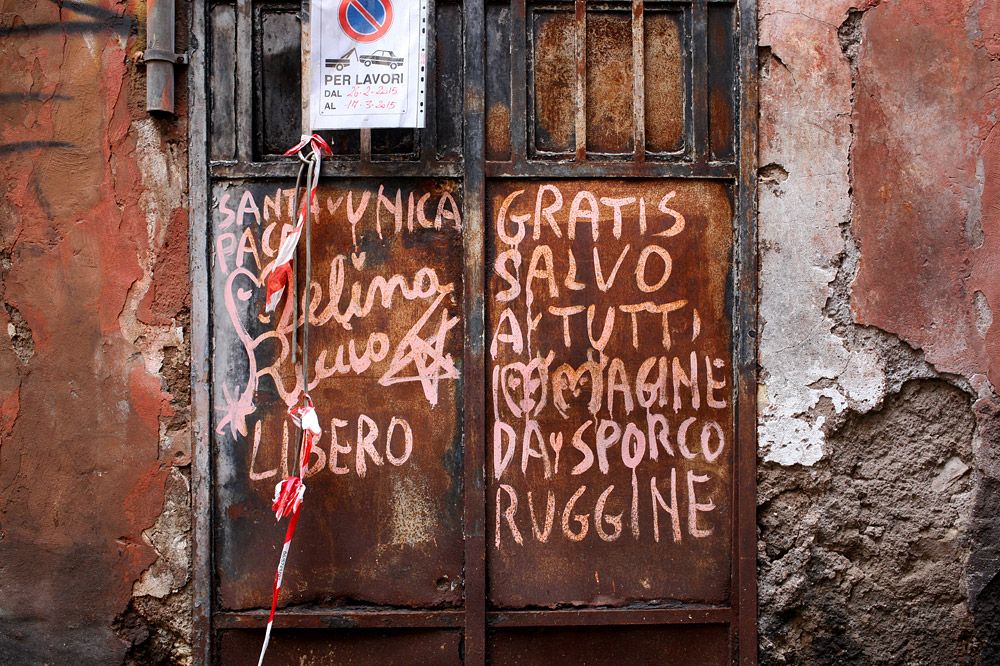 PER LAVORI
DAL 26-2-2015
AL 14-3-2015
SANTA UNICA
PACE
Zelina
LIBERO
GRATIS
SALVO
A TUTTI,
IMMAGINE
DA SPORCO
RUGGINE